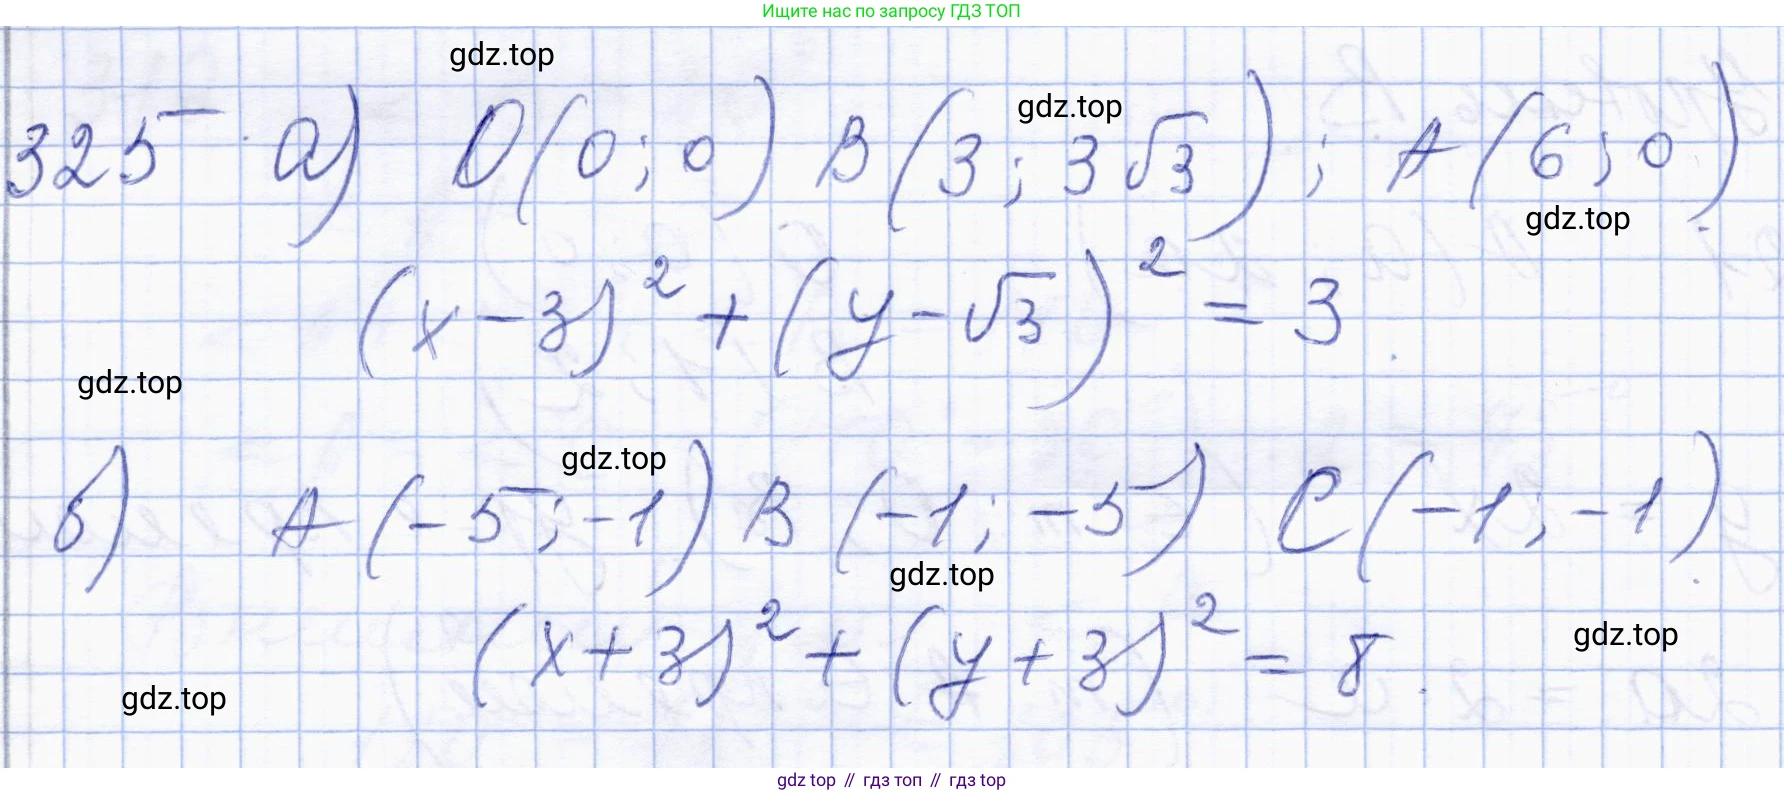 Ищите нас по запросу ГДЗ ТОП
gdz.top
325 а) O(0;0) B(3;3√3); A(6;0)
gdz.top
gdz.top
(x-3)² + (y-√3)² = 3.
gdz.top
gdz.top
б) A(-5;-1) B(-1;-5) C(-1;-1).
gdz.top
(x+3)² + (y+3)² = 8.
gdz.top
gdz.top
gdz top // гдз топ // гдз top